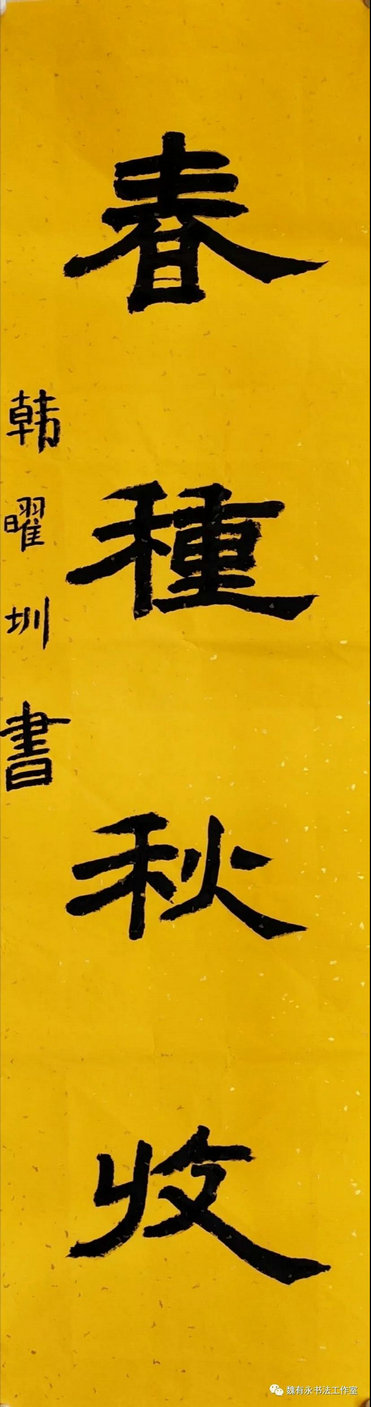 春種秋收
韩曜圳書
魏有永书法工作室